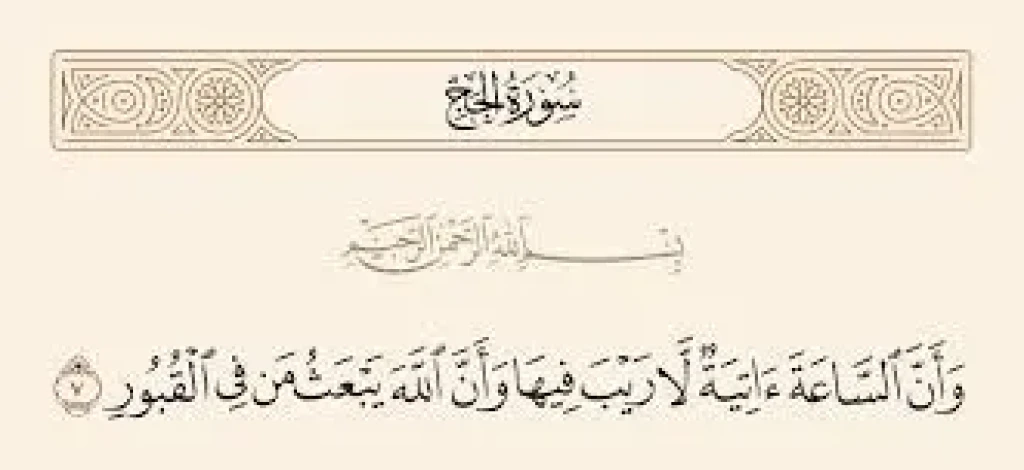 سُورَةُ الحَجِّ
بِسْمِ ٱللَّهِ ٱلرَّحْمَٰنِ ٱلرَّحِيمِ
وَأَنَّ ٱلسَّاعَةَ ءَاتِيَةٌ لَّا رَيْبَ فِيهَا وَأَنَّ ٱللَّهَ يَبْعَثُ مَن فِى ٱلْقُبُورِ ٧